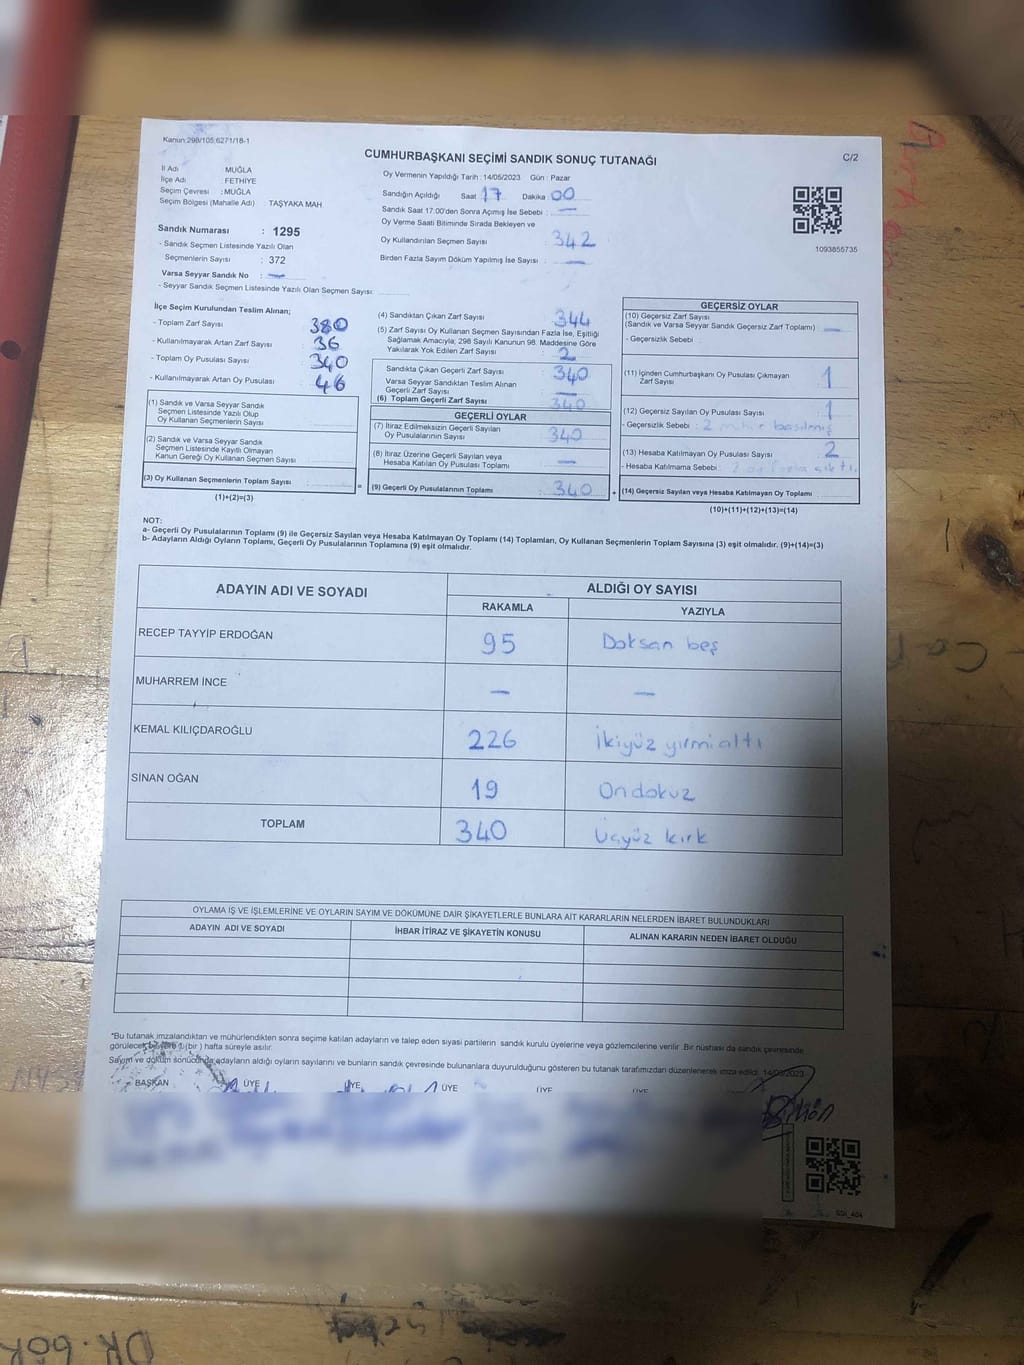 Kanun:298/105;6271/18-1
CUMHURBAŞKANI SEÇİMİ SANDIK SONUÇ TUTANAĞI
C/2
İl Adı MUĞLA
İlçe Adı FETHİYE
Seçim Çevresi : MUĞLA
Seçim Bölgesi (Mahalle Adı) TAŞYAKA MAH
Oy Vermenin Yapıldığı Tarih : 14/05/2023 Gün : Pazar
Sandığın Açıldığı Saat 17 Dakika 00
Sandık Saat 17:00'den Sonra Açmış İse Sebebi : —
Oy Verme Saati Bitiminde Sırada Bekleyen ve
Oy Kullandırılan Seçmen Sayısı : 342
Birden Fazla Sayım Döküm Yapılmış İse Sayısı : —
1093855735
Sandık Numarası : 1295
- Sandık Seçmen Listesinde Yazılı Olan
Seçmenlerin Sayısı : 372
Varsa Seyyar Sandık No : —
- Seyyar Sandık Seçmen Listesinde Yazılı Olan Seçmen Sayısı:
İlçe Seçim Kurulundan Teslim Alınan;
- Toplam Zarf Sayısı : 380
- Kullanılmayarak Artan Zarf Sayısı : 36
- Toplam Oy Pusulası Sayısı : 340
- Kullanılmayarak Artan Oy Pusulası : 46
(1) Sandık ve Varsa Seyyar Sandık
Seçmen Listesinde Yazılı Olup
Oy Kullanan Seçmenlerin Sayısı :
(2) Sandık ve Varsa Seyyar Sandık
Seçmen Listesinde Kayıtlı Olmayan
Kanun Gereği Oy Kullanan Seçmen Sayısı :
(3) Oy Kullanan Seçmenlerin Toplam Sayısı : =
(1)+(2)=(3)
(4) Sandıktan Çıkan Zarf Sayısı : 344
(5) Zarf Sayısı Oy Kullanan Seçmen Sayısından Fazla İse, Eşitliği
Sağlamak Amacıyla; 298 Sayılı Kanunun 98. Maddesine Göre
Yakılarak Yok Edilen Zarf Sayısı : 2
Sandıkta Çıkan Geçerli Zarf Sayısı : 340
Varsa Seyyar Sandıktan Teslim Alınan
Geçerli Zarf Sayısı : —
(6) Toplam Geçerli Zarf Sayısı : 340
GEÇERLİ OYLAR
(7) İtiraz Edilmeksizin Geçerli Sayılan
Oy Pusulalarının Sayısı : 340
(8) İtiraz Üzerine Geçerli Sayılan veya
Hesaba Katılan Oy Pusulası Toplamı : —
(9) Geçerli Oy Pusulalarının Toplamı : 340 +
GEÇERSİZ OYLAR
(10) Geçersiz Zarf Sayısı
(Sandık ve Varsa Seyyar Sandık Geçersiz Zarf Toplamı) : —
- Geçersizlik Sebebi :
(11) İçinden Cumhurbaşkanı Oy Pusulası Çıkmayan
Zarf Sayısı : 1
(12) Geçersiz Sayılan Oy Pusulası Sayısı : 1
- Geçersizlik Sebebi : 2 mühür basılmış
(13) Hesaba Katılmayan Oy Pusulası Sayısı : 2
- Hesaba Katılmama Sebebi : 2 oy fazla çıktı.
(14) Geçersiz Sayılan veya Hesaba Katılmayan Oy Toplamı :
(10)+(11)+(12)+(13)=(14)
NOT:
a- Geçerli Oy Pusulalarının Toplamı (9) ile Geçersiz Sayılan veya Hesaba Katılmayan Oy Toplamı (14) Toplamları, Oy Kullanan Seçmenlerin Toplam Sayısına (3) eşit olmalıdır. (9)+(14)=(3)
b- Adayların Aldığı Oyların Toplamı, Geçerli Oy Pusulalarının Toplamına (9) eşit olmalıdır.
ADAYIN ADI VE SOYADI ALDIĞI OY SAYISI
RAKAMLA YAZIYLA
RECEP TAYYİP ERDOĞAN 95 Doksan beş
MUHARREM İNCE — —
KEMAL KILIÇDAROĞLU 226 İkiyüz yirmi altı
SİNAN OĞAN 19 Ondokuz
TOPLAM 340 Üçyüz kırk
OYLAMA İŞ VE İŞLEMLERİNE VE OYLARIN SAYIM VE DÖKÜMÜNE DAİR ŞİKAYETLERLE BUNLARA AİT KARARLARIN NELERDEN İBARET BULUNDUKLARI
ADAYIN ADI VE SOYADI İHBAR İTİRAZ VE ŞİKAYETİN KONUSU ALINAN KARARIN NEDEN İBARET OLDUĞU
*Bu tutanak imzalandıktan ve mühürlendikten sonra seçime katılan adayların ve talep eden siyasi partilerin sandık kurulu üyelerine veya gözlemcilerine verilir. Bir nüshası da sandık çevresinde
görülecek bir yere 1 (bir ) hafta süreyle asılır.
Sayım ve döküm sonucunda adayların aldığı oyların sayılarını ve bunların sandık çevresinde bulunanlara duyurulduğunu gösteren bu tutanak tarafımızdan düzenlenerek imza edildi. 14/05/2023
BAŞKAN ÜYE ÜYE ÜYE ÜYE ÜYE
SSI_404